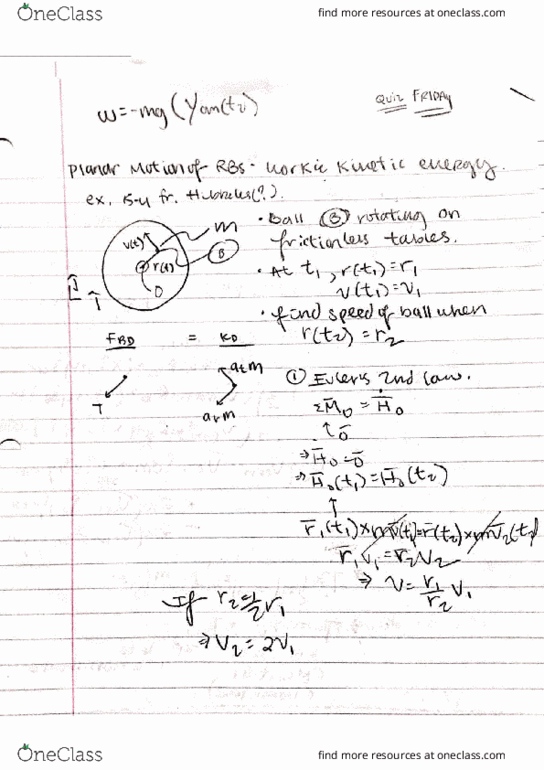 OneClass
find more resources at oneclass.com
w=-mg(Yom(t₂)
QUIZ FRIDAY
Planar Motion of RBs - workie kinetic energy.
ex. 15-4 fr. (?).
• Ball Ⓑ rotating on
frictionless tables.
• At t₁, r(t₁)=r₁
v(t₁)=v₁
• find speed of ball when
r(t₂)=r₂
v(t)
r(t)
m
B
O
FBD = KD
T
aₜm
aᵣm
① Euler's 2nd law.
ΣM̄₀ = H̄̇₀
↑ō
⇒ H̄̇₀=ō
⇒ H̄₀(t₁)=H̄₀(t₂)
↑
r̄₁(t₁)×mv̄(t₁)=r̄(t₂)×mv̄₂(t₂)
r̄₁v₁=r̄₂v₂
⇒ v=r₁/r₂ v₁
If r₂=½r₁
⇒ v₂=2v₁
OneClass
find more resources at oneclass.com